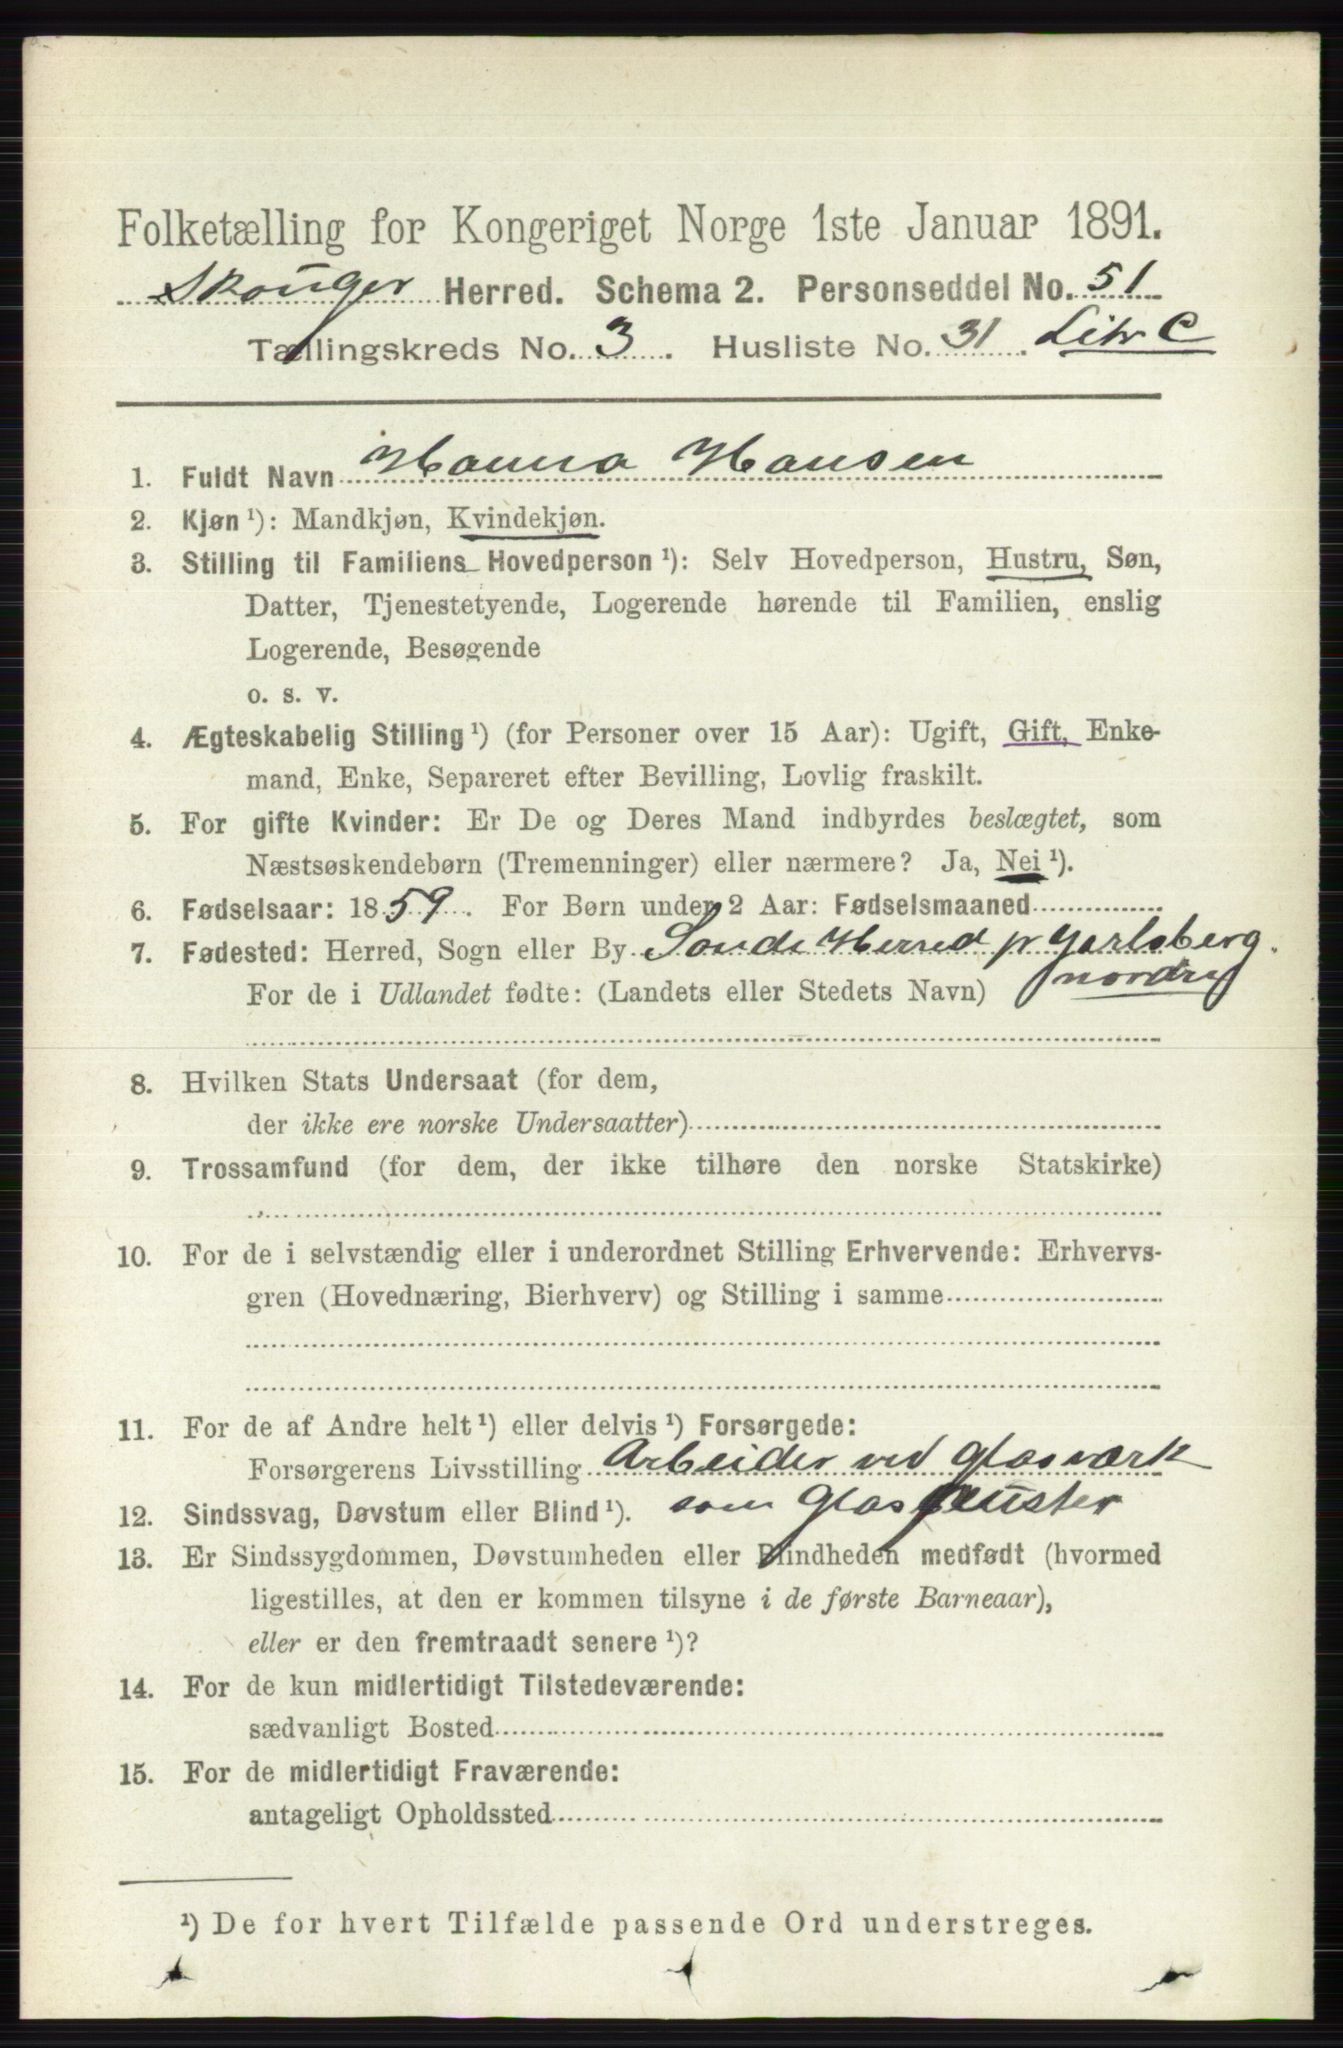 Folketælling for Kongeriget Norge 1ste Januar 1891.
Skouger Herred. Schema 2. Personseddel No. 51
Tællingskreds No. 3. Husliste No. 31. Litr C
1. Fuldt Navn Hanna Hansen
2. Kjøn ¹): Mandkjøn, Kvindekjøn.
3. Stilling til Familiens Hovedperson ¹): Selv Hovedperson, Hustru, Søn,
Datter, Tjenestetyende, Logerende hørende til Familien, enslig
Logerende, Besøgende
o. s. v.
4. Ægteskabelig Stilling ¹) (for Personer over 15 Aar): Ugift, Gift, Enke-
mand, Enke, Separeret efter Bevilling, Lovlig fraskilt.
5. For gifte Kvinder: Er De og Deres Mand indbyrdes beslægtet, som
Næstsøskendebørn (Tremenninger) eller nærmere? Ja, Nei ¹).
6. Fødselsaar: 1859. For Børn under 2 Aar: Fødselsmaaned
7. Fødested: Herred, Sogn eller By Sande Herred pr Jarlsberg.
For de i Udlandet fødte: (Landets eller Stedets Navn)
8. Hvilken Stats Undersaat (for dem,
der ikke ere norske Undersaatter)
9. Trossamfund (for dem, der ikke tilhøre den norske Statskirke)
10. For de i selvstændig eller i underordnet Stilling Erhvervende: Erhvervs-
gren (Hovednæring, Bierhverv) og Stilling i samme
11. For de af Andre helt ¹) eller delvis ¹) Forsørgede:
Forsørgerens Livsstilling Arbeider ved Glasværk
som Glaspuster
12. Sindssvag, Døvstum eller Blind ¹).
13. Er Sindssygdommen, Døvstumheden eller Blindheden medfødt (hvormed
ligestilles, at den er kommen tilsyne i de første Barneaar),
eller er den fremtraadt senere ¹)?
14. For de kun midlertidigt Tilstedeværende:
sædvanligt Bosted
15. For de midlertidigt Fraværende:
antageligt Opholdssted
¹) De for hvert Tilfælde passende Ord understreges.